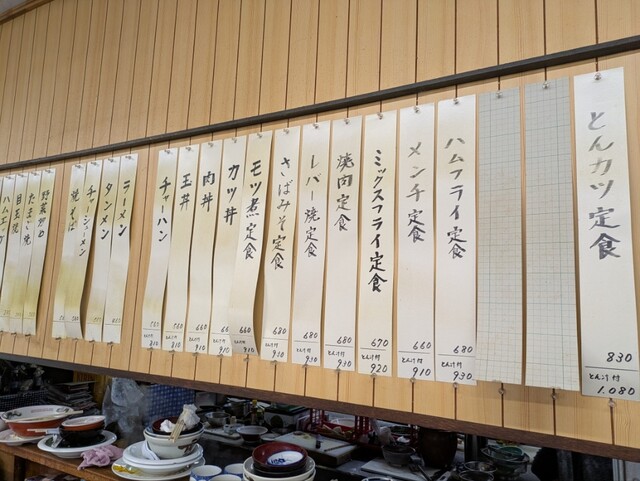 とんカツ定食
830
とん汁付
1.080
ハムフライ定食
680
とん汁付
930
メンチ定食
660
とん汁付
910
ミックスフライ定食
670
とん汁付
920
焼肉定食
680
とん汁付
930
レバー焼定食
680
とん汁付
930
さばみそ定食
680
とん汁付
930
モツ煮定食
660
とん汁付
910
カツ丼
とん汁付
910
肉丼
660
とん汁付
910
玉丼
560
810
チャーハン
810
ラーメン
タンメン
チャーシューメン
焼そば
野菜炒め
たまご焼
目玉焼
ハムエッグ